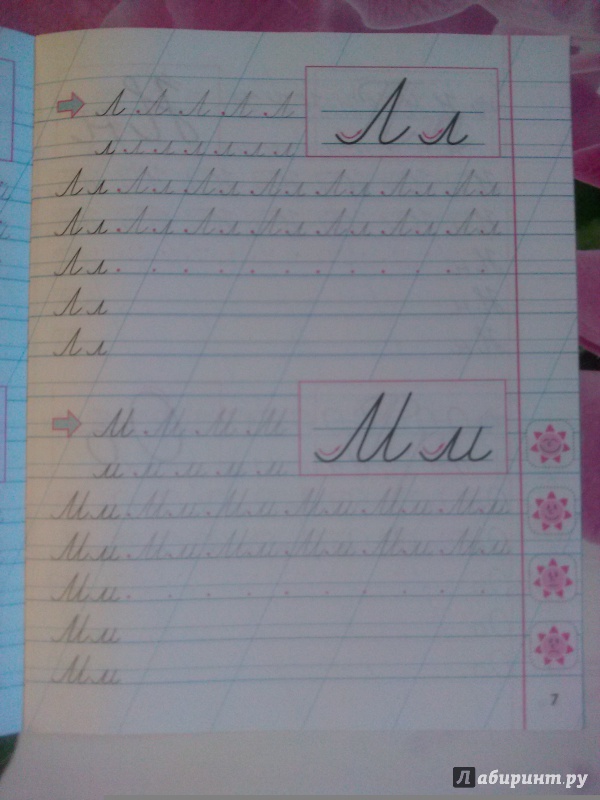 Л Л Л Л Л
Л л
л л л л л л л
Лл Лл Лл Лл Лл Лл Лл
Лл Лл Лл Лл Лл Лл Лл
Лл
Лл
Лл
М М М М
М м
м м м м м
Мм Мм Мм Мм Мм Мм
Мм Мм Мм Мм Мм Мм
Мм
Мм
Мм
7
Лабиринт.ру